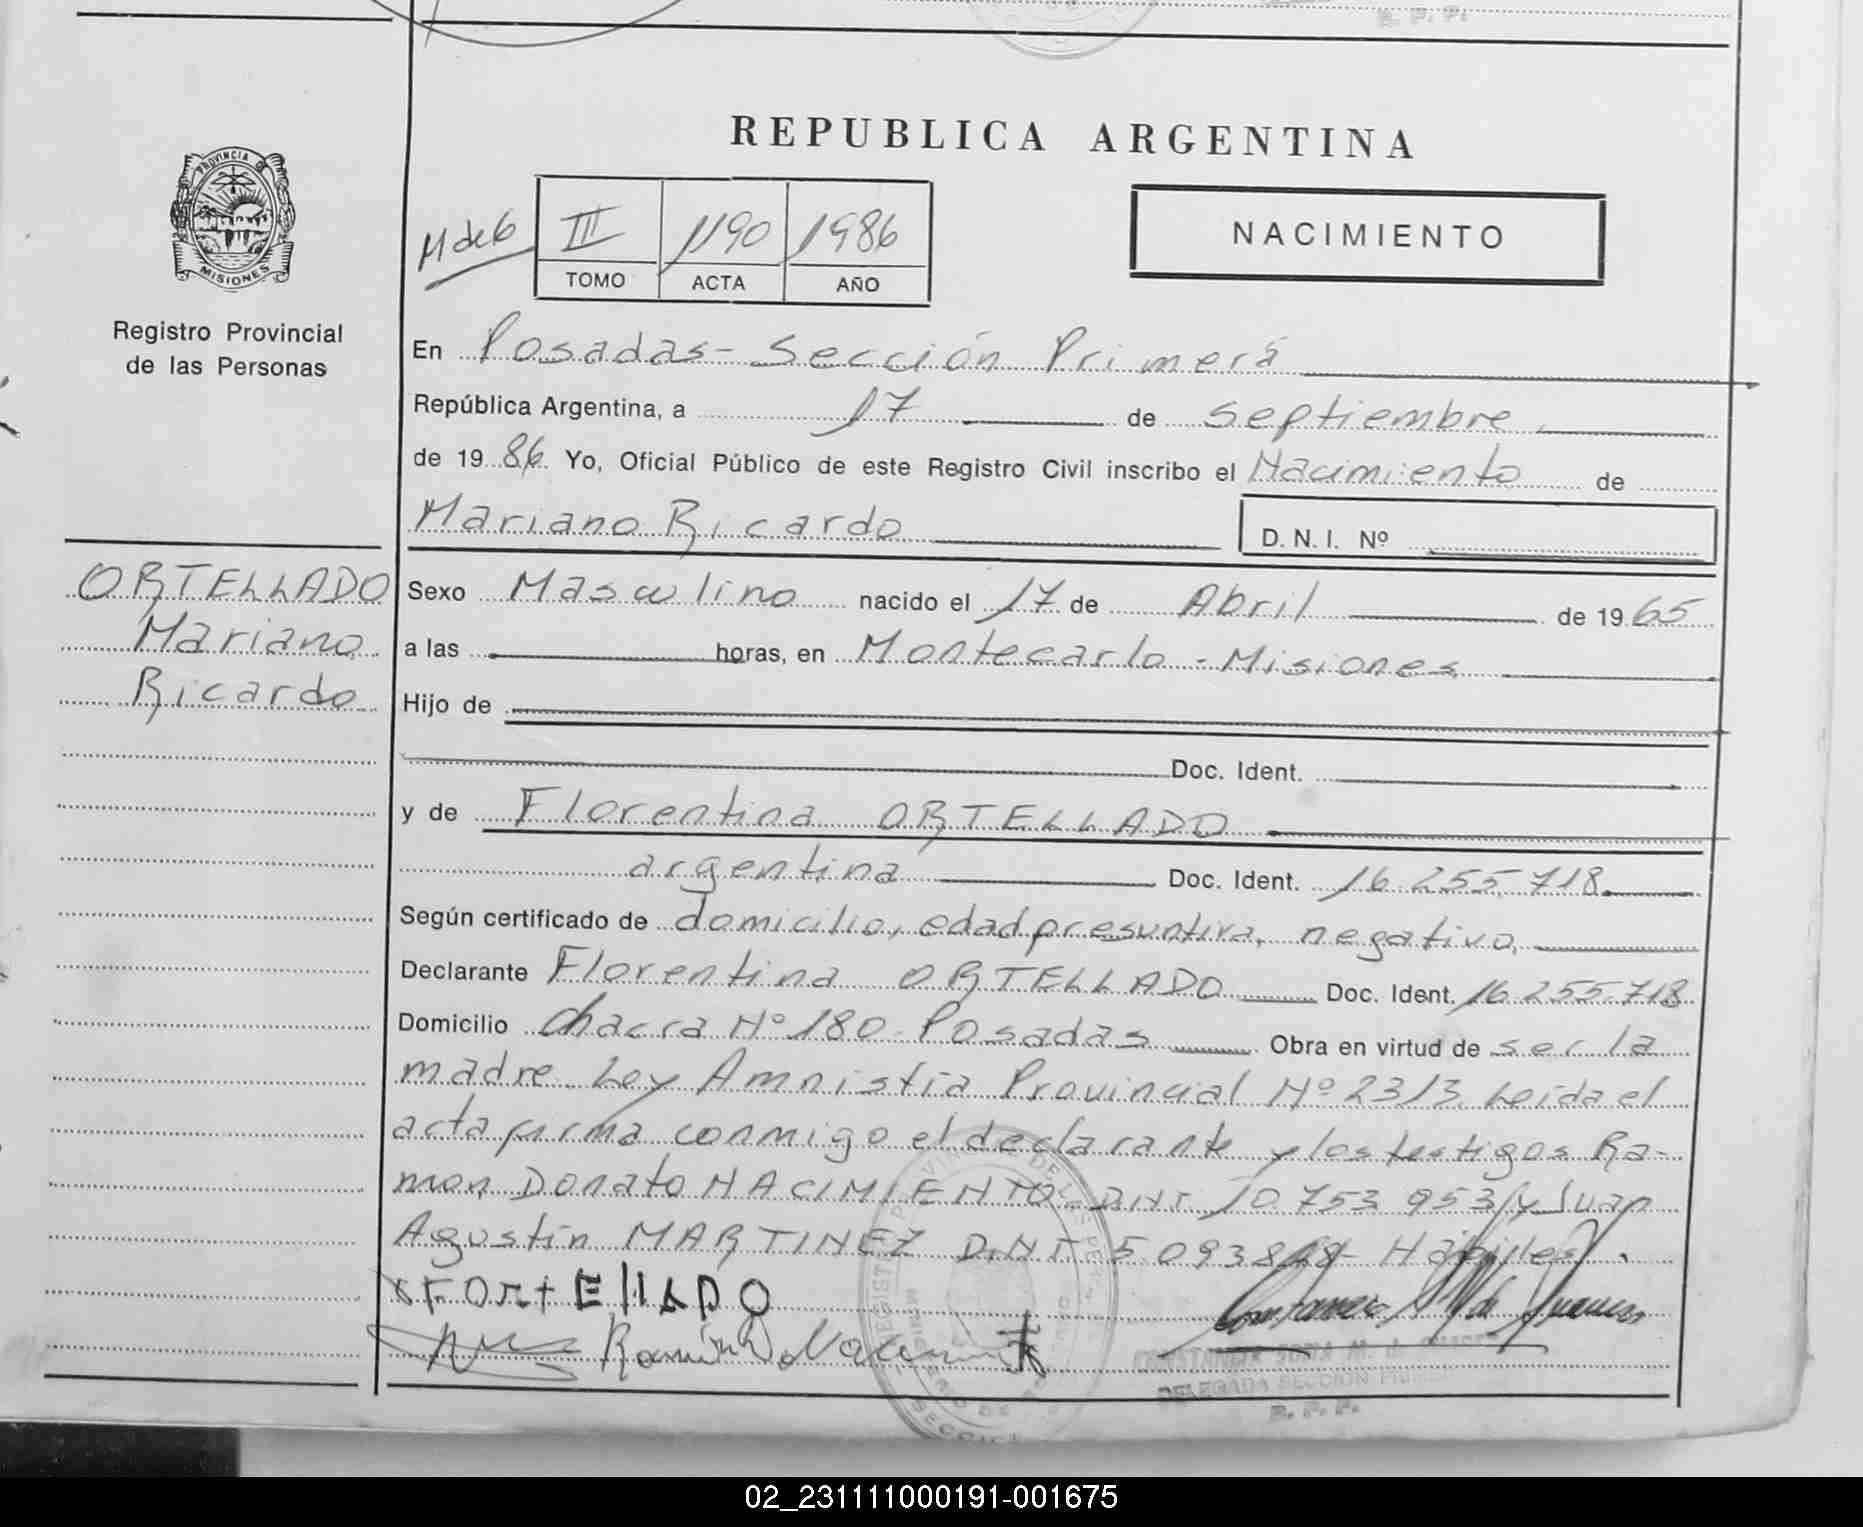 REPUBLICA ARGENTINA
PROVINCIA DE
MISIONES
Registro Provincial
de las Personas
M de 6
III
1190
1986
TOMO
ACTA
AÑO
NACIMIENTO
En Posadas - Sección Primera
República Argentina, a 17 de Septiembre
de 19 86 Yo, Oficial Público de este Registro Civil inscribo el Nacimiento de
Mariano Ricardo D.N.I. Nº
ORTELLADO
Mariano
Ricardo
Sexo Masculino nacido el 17 de Abril de 19 65
a las horas, en Montecarlo - Misiones
Hijo de
Doc. Ident.
y de Florentina ORTELLADO
argentina Doc. Ident. 16 255 718
Según certificado de domicilio, edad presuntiva, negativo,
Declarante Florentina ORTELLADO Doc. Ident. 16 255 718
Domicilio Chacra Nº 180 - Posadas Obra en virtud de ser la
madre. Ley Amnistía Provincial Nº 2313. Leida el
acta firma conmigo el declarante y los testigos Ra-
mon Donato NACIMIENTO DNI 10 753 953 / y Juan
Agustín MARTINEZ D.N.I 5 093 8 8 - Hábiles.
F ORtEllADO
DELEGADA SECCION
R. P. P.
02_231111000191-001675